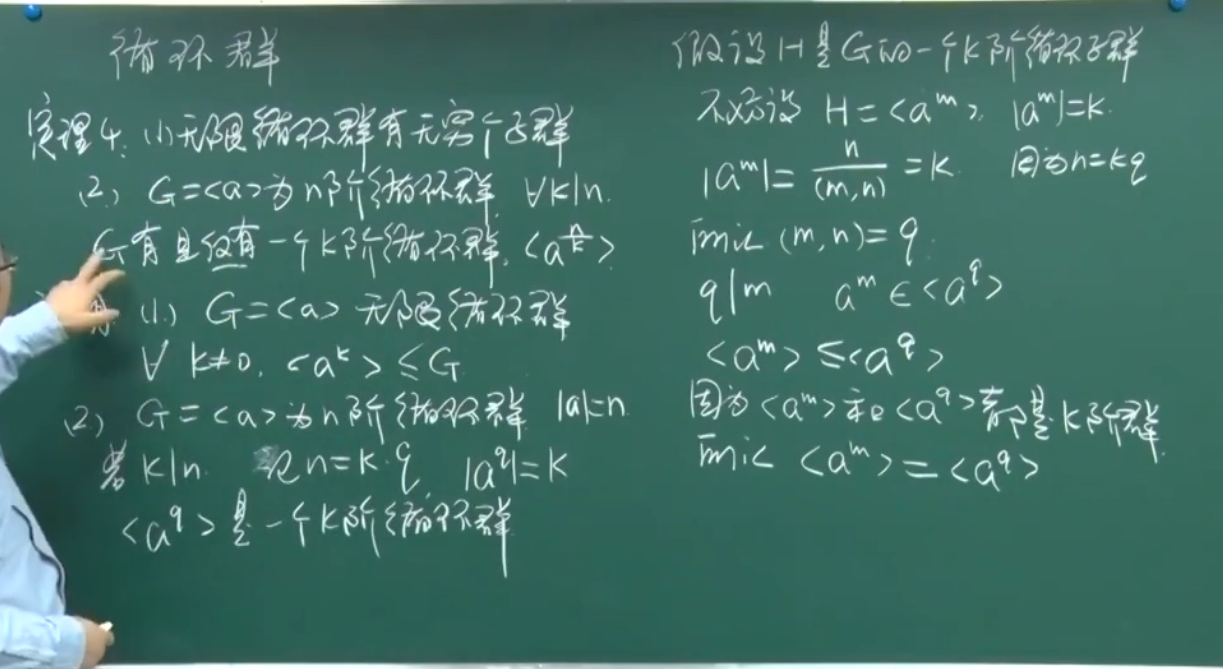 循环群
定理4. (1) 无限循环群有无穷个子群
(2) G=<a>为n阶循环群, ∀k|n.
G有且仅有一个k阶循环群. <a^{n/k}>
(1) G=<a> 无限循环群
∀ k≠0, <a^k> ≤ G
(2) G=<a>为n阶循环群 |a|=n
若 k|n. 记 n=k·q, |a^q|=k
<a^q>是一个k阶循环群
假设H是G的一个k阶循环子群
不妨设 H=<a^m>, |a^m|=k.
|a^m|= \frac{n}{(m,n)} =k. 因为n=kq
所以 (m,n)=q.
q|m a^m ∈ <a^q>
<a^m> ≤ <a^q>
因为<a^m>和<a^q>都是k阶群.
所以 <a^m> = <a^q>